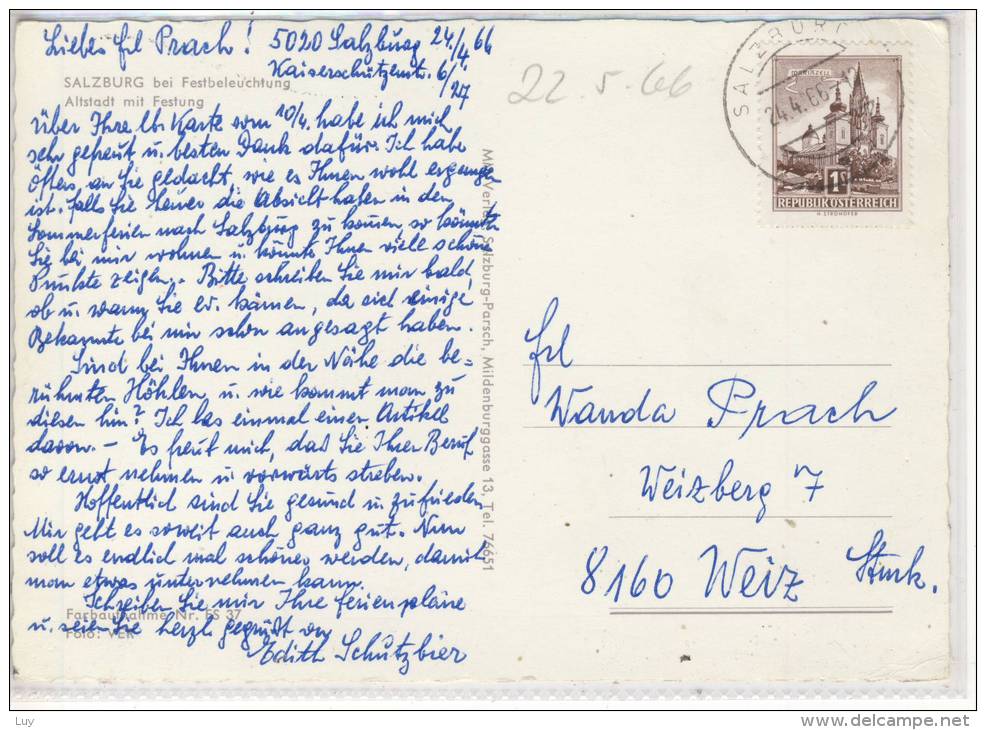 Liebes Frl Prach! 5020 Salzburg 24./4 66
Kaiserschützenstr. 6/27
SALZBURG bei Festbeleuchtung
Altstadt mit Festung
Über Ihre lb. Karte vom 10/4. habe ich mich
sehr gefreut u. besten Dank dafür. Ich habe
öfters an Sie gedacht, wie es Ihnen wohl ergangen
ist. Falls Sie heuer die Absicht haben in den
Sommerferien nach Salzburg zu kommen, so könnten
Sie bei mir wohnen u. könnte Ihnen viele schöne
Punkte zeigen. Bitte schreiben Sie mir bald,
ob u. wann Sie ev. kämen, da sich einige
Bekannte bei mir schon angesagt haben.
Sind bei Ihnen in der Nähe die be=
rühmten Höhlen u. wie kommt man zu
diesen hin? Ich las einmal einen Artikel
davon. – Es freut mich, daß Sie Ihren Beruf
so ernst nehmen u. vorwärts streben.
Hoffentlich sind Sie gesund u. zufrieden
Mir geht es soweit auch ganz gut. Nun
soll es endlich mal schöner werden, damit
man etwas unternehmen kann.
Schreiben Sie mir Ihre Ferienpläne
u. seien Sie herzl. gegrüßt von
Edith Schutzbier
Farbaufnahme Nr. FS 37
Foto: VER
Salzburg-Parsch, Mildenburggasse 13, Tel. 76651
22.5.66
SALZBURG
24.4.66-12
MARIAZELL
1S
REPUBLIK ÖSTERREICH
H. STROHOFER
Frl
Wanda Prach
Weizberg 7
8160 Weiz Stmk.
Luy
delcampe.net